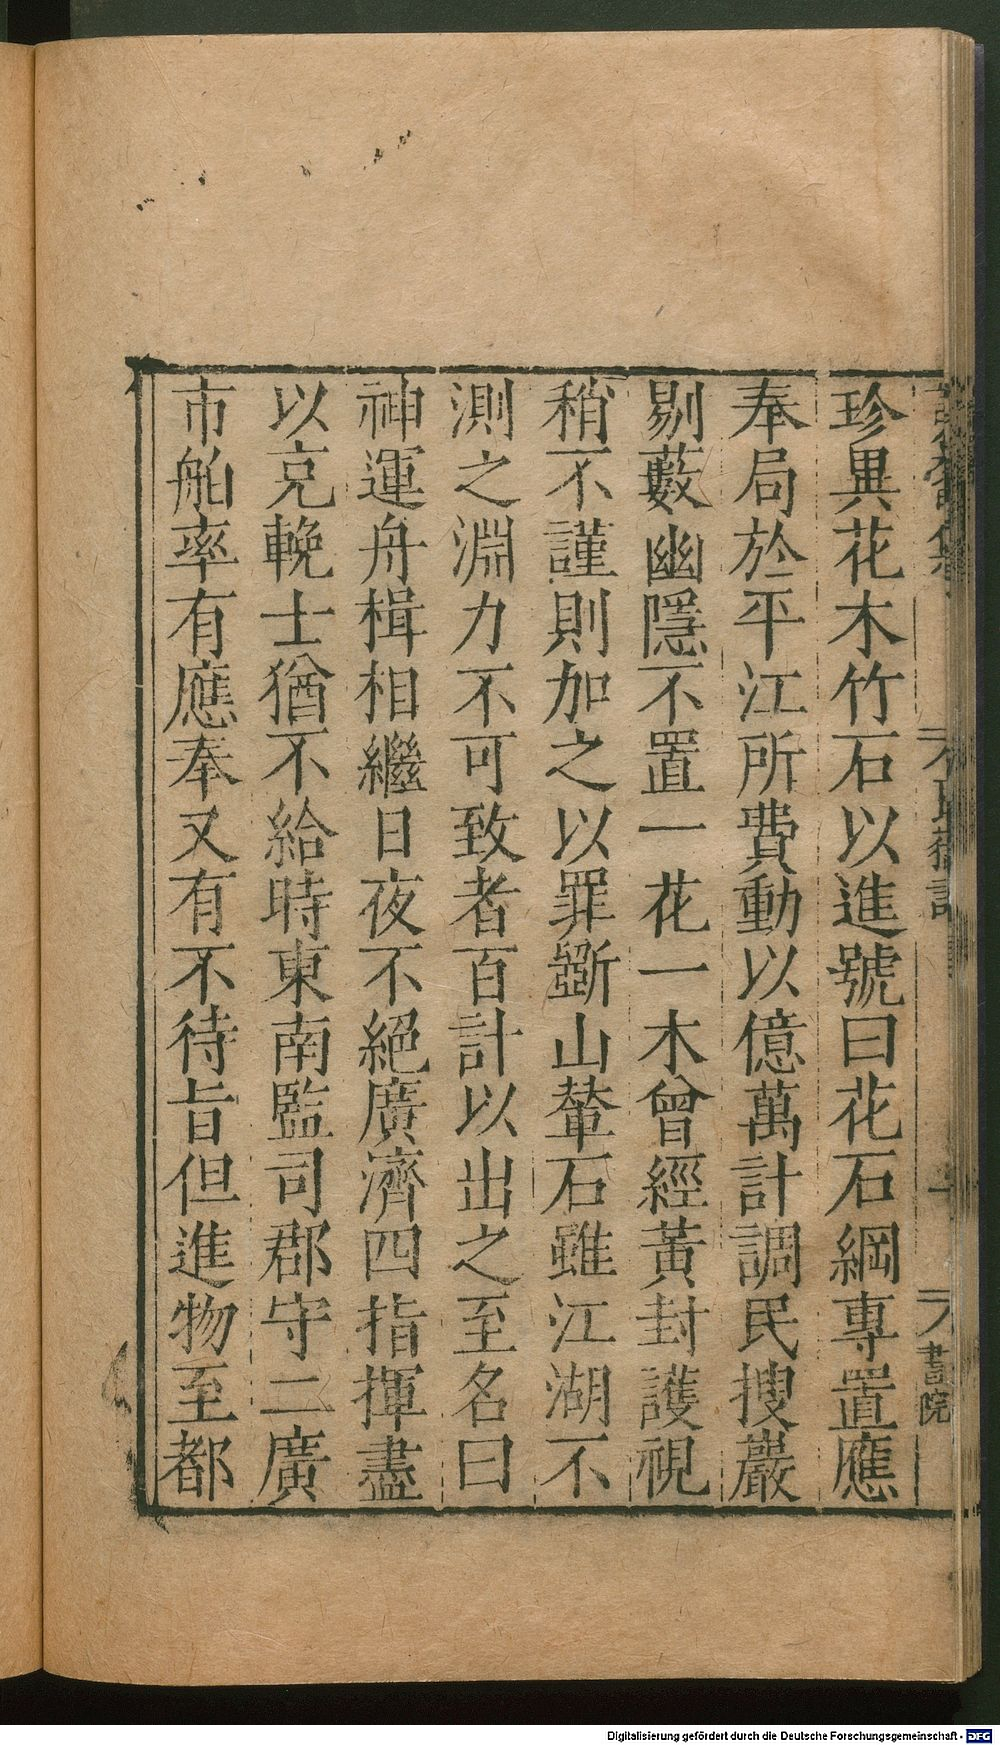 珍異花木竹石以進號曰花石綱專置應
奉局於平江所費動以億萬計調民搜巖
剔藪幽隱不置一花一木曾經黃封護視
稍不謹則加之以罪斵山輦石雖江湖不
測之淵力不可致者百計以出之至名曰
神運舟楫相繼日夜不絕廣濟四指揮盡
以充輓士猶不給時東南監司郡守二廣
市舶率有應奉又有不待旨但進物至都
書院
Digitalisierung gefördert durch die Deutsche Forschungsgemeinschaft - DFG